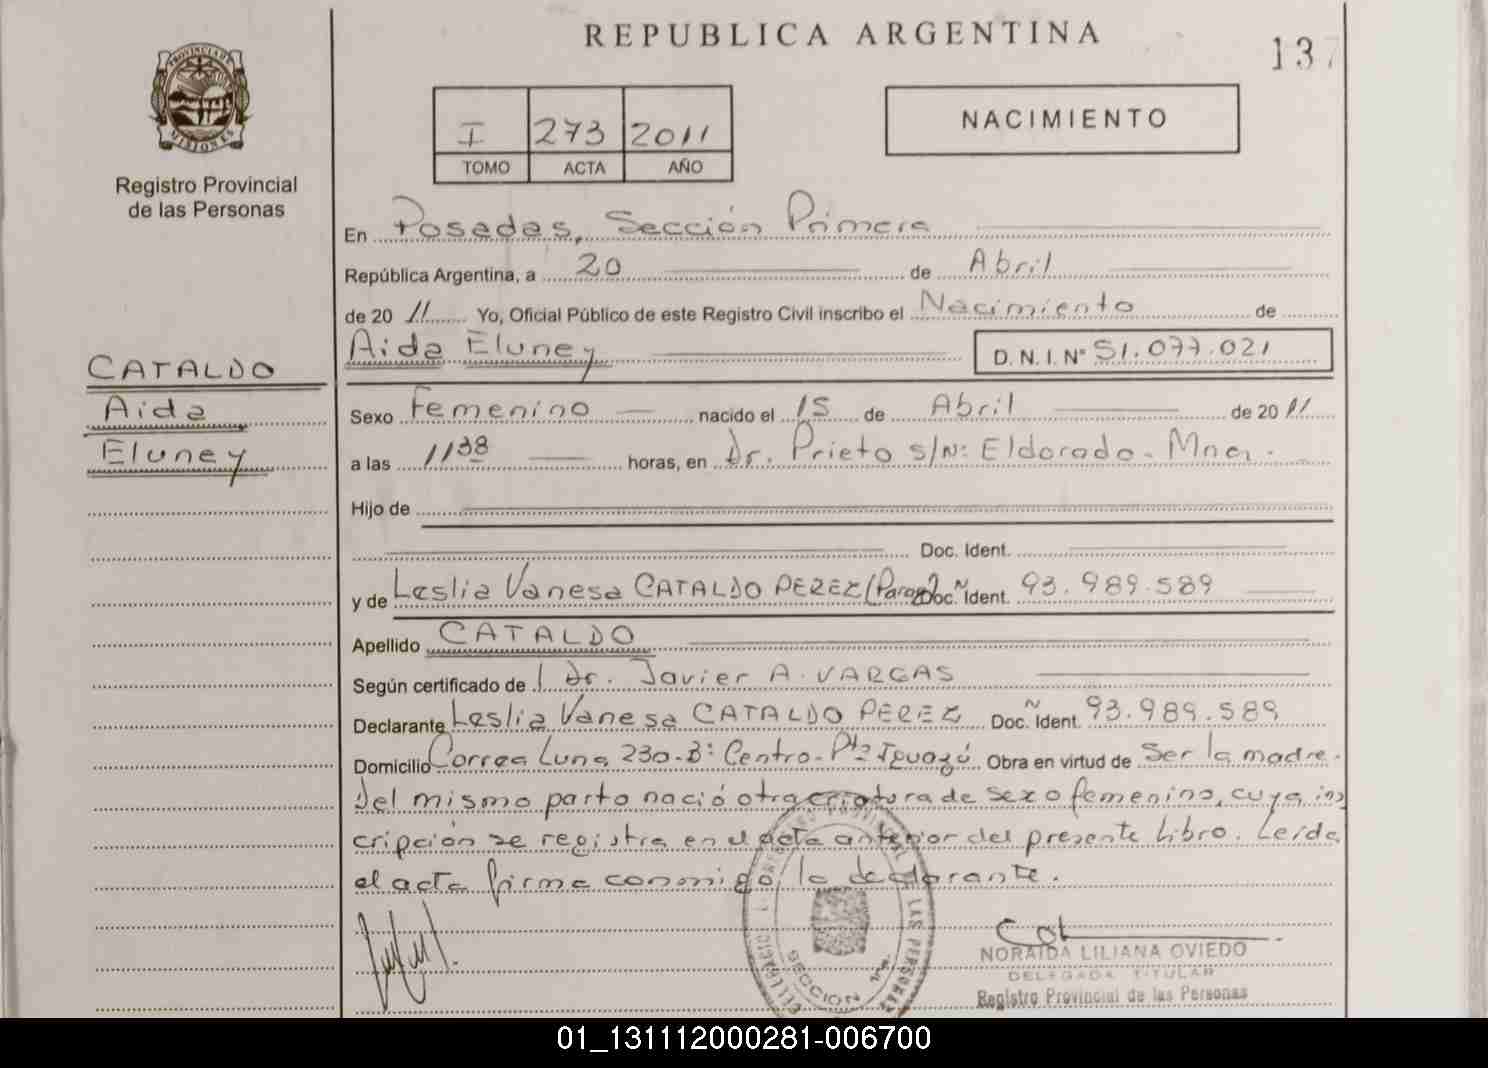 REPUBLICA ARGENTINA
137
PROVINCIA DE MISIONES
Registro Provincial
de las Personas
I 273 2011
TOMO ACTA AÑO
NACIMIENTO
En Posadas, Sección Primera
República Argentina, a 20 de Abril
de 20 11 Yo, Oficial Público de este Registro Civil inscribo el Nacimiento de
Aida Eluney D.N.I. N° 51.077.021
CATALDO
Aida
Eluney
Sexo Femenino nacido el 15 de Abril de 20 11
a las 11 38 horas, en Dr. Prieto s/N: Eldorado - Mnes.
Hijo de
Doc. Ident.
y de Leslia Vanesa CATALDO PEREZ (Parag) Doc. Ident. 93.989.589
Apellido CATALDO
Según certificado de Dr. Javier A. VARGAS
Declarante Leslia Vanesa CATALDO PEREZ Doc. Ident. 93.989.589
Domicilio Correa Luna 230-B: Centro - Pto Iguazú Obra en virtud de Ser la madre.
Del mismo parto nació otra criatura de sexo femenino, cuya ins
cripción se registra en el acta anterior del presente Libro. Leída
el acta firma conmigo, la declarante.
NORAIDA LILIANA OVIEDO
DELEGADA TITULAR
Registro Provincial de las Personas
REGISTRO PROVINCIAL DE LAS PERSONAS
SECCION 1ra.
01_131112000281-006700